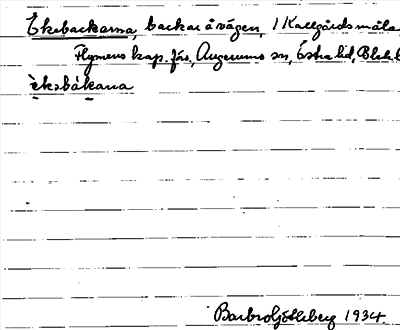 Eksbackarna, backar å vägen, 1 Kallgårdsmåla
Flymens kap. förs., Augerums sn, Östra hd, Blek
èksbákana
Barbro Götheberg 1934.